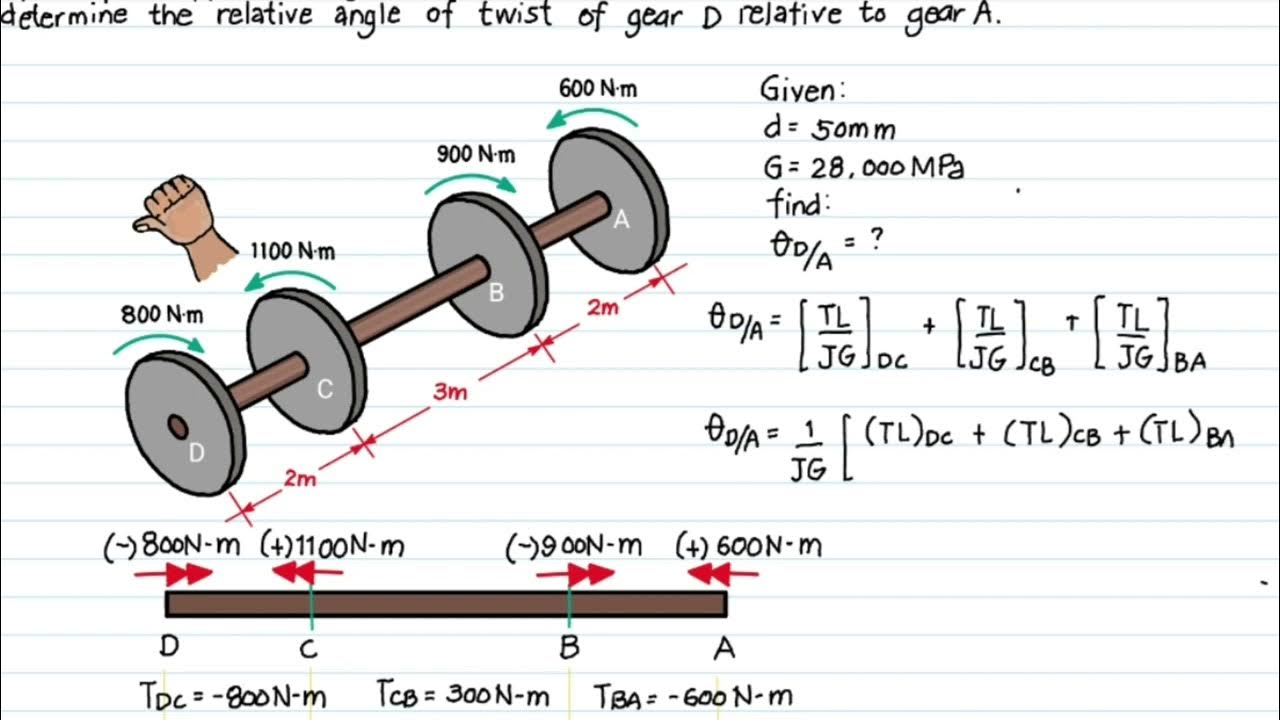 determine the relative angle of twist of gear D relative to gear A.
600 N·m
900 N·m
1100 N·m
800 N·m
A
B
C
D
2m
3m
2m
Given:
d = 50mm
G = 28,000 MPa
find:
θD/A = ?
θD/A = [TL/JG]DC + [TL/JG]CB + [TL/JG]BA
θD/A = 1/JG [(TL)DC + (TL)CB + (TL)BA
(-)800N-m (+)1100N-m (-)900N-m (+)600N-m
D C B A
TDC = -800N-m TCB = 300N-m TBA = -600N-m